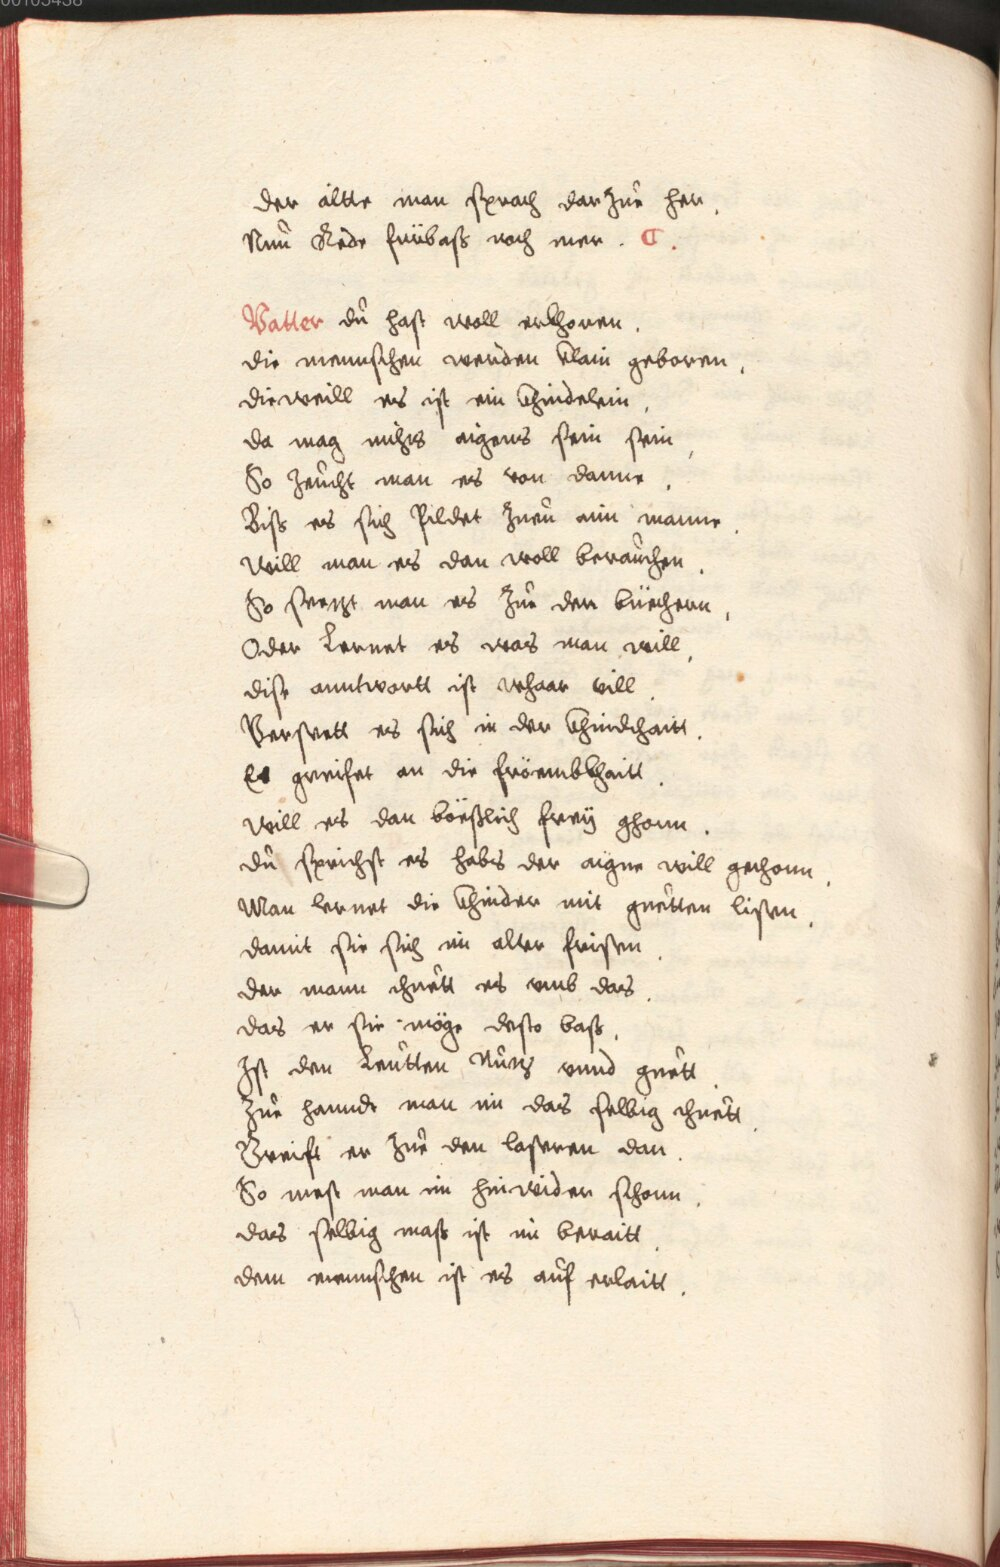 der altte man sprach dar Zue her.
Nun Rede furbaß noch mer. C.
Vatter du hast woll erkhoren.
die mennschen werden klain geboren.
dieweill es ist ein khindelein.
da mag nichts aigens sein sein.
So Zeucht man es von danne.
Biß es sich Pildet Zueu aim manne.
Will man es dan woll berauchen.
So seczt man es Zue den büechern.
Oder Lernet es was man will.
dise anntwortt ist whaar vill.
Versett es sich in der khindchaitt.
Es greifet an die fröembkhaitt.
Will es dan böeßlich freÿ ghonn.
du sprichst es habs der aigne will gethonn.
Man lernet die khinder mit guetten lissen.
damit sie sich im alter frissen.
der mann thuett es vmb das.
das er sie möge desto baß.
Ist den Leutten Nutz vnnd guett.
Zue hanndt man im das selbig thuett.
Greift er Zue den lasteren dan.
So mest man im hinwider schonn.
das selbig maß ist im beraitt.
dem mennschen ist es auf erlaitt.